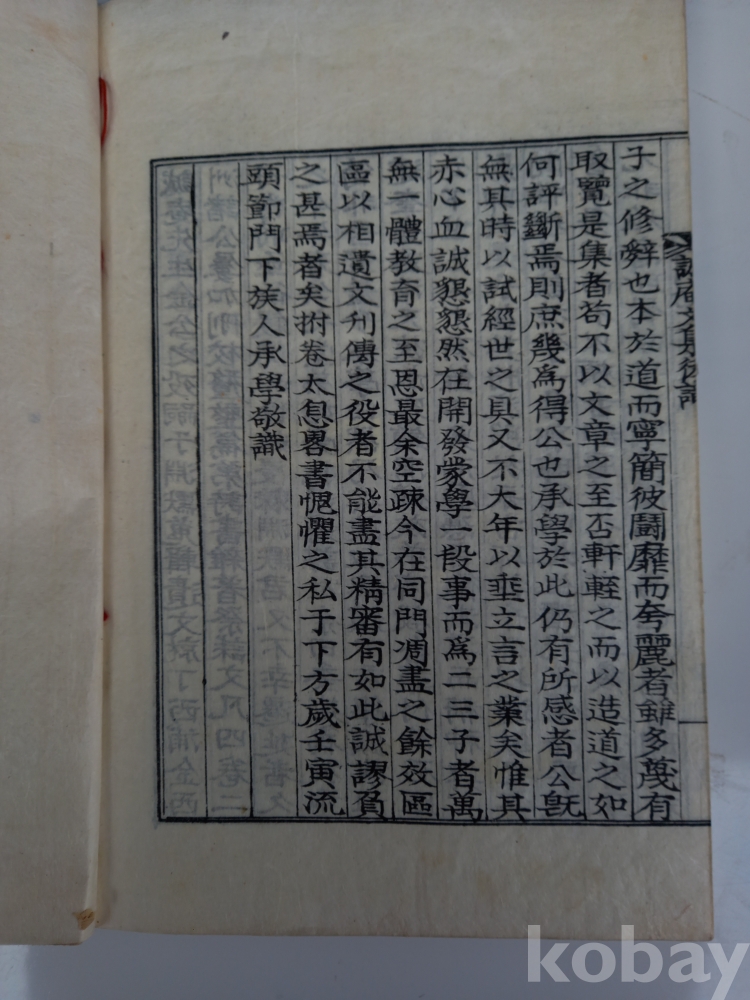 誠庵文集後識
子之修辭也本於道而寧簡彼鬪靡而夸麗者雖多蔑有
取覽是集者苟不以文章之至否軒輊之而以造道之如
何評斷焉則庶幾爲得公也承學於此仍有所感者公旣
無其時以試經世之具又不大年以垂立言之業矣惟其
赤心血誠懇懇然在開發蒙學一段事而爲二三子者萬
無一體教育之至恩最余空疎今在同門凋盡之餘效區
區以相遺文刊傳之役者不能盡其精審有如此誠謬負
之甚焉者矣拊卷太息畧書愧懼之私于下方歲壬寅流
頭節門下族人承學敬識
kobay